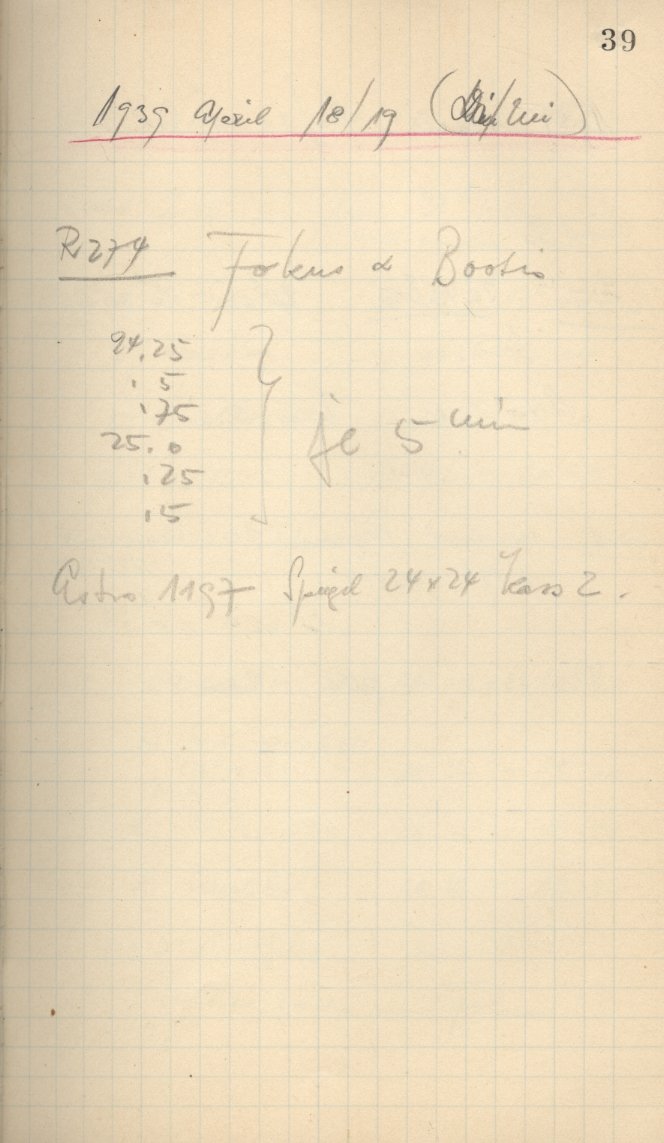 39
1939 April 18/19 (Di/Mi)
R274 Fokus α Bootis
24.25
.5
.75
25.0
.25
.5
je 5 min
Astro 1197 Spiegel 24x24 Kass 2.